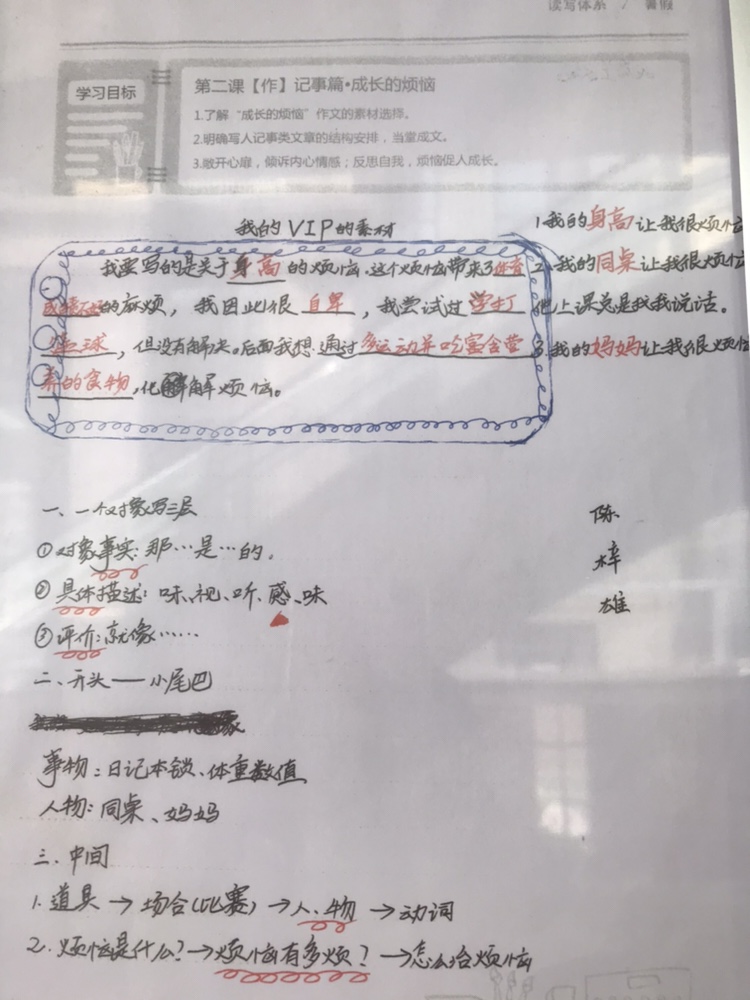 读写体系 / 暑假
学习目标
第二课【作】记事篇·成长的烦恼
1.了解“成长的烦恼”作文的素材选择。
2.明确写人记事类文章的结构安排，当堂成文。
3.敞开心扉，倾诉内心情感；反思自我，烦恼促人成长。
我的VIP的素材
我要写的是关于身高的烦恼。这个烦恼带来了体育
成绩不好的麻烦，我因此很自卑，我尝试过学打
篮球，但没有解决。后面我想通过多运动并吃富含营
养的食物，化解烦恼。
1.我的身高让我很烦恼
2.我的同桌让我很烦恼
他上课总是找我说话。
3.我的妈妈让我很烦恼
一、一个对象写三层
①对象事实：那…是…的。
②具体描述：味、视、听、感、味
③评价：就像……
陈
梓
雄
二、开头——小尾巴
事物：日记本锁、体重数值
人物：同桌、妈妈
三、中间
1.道具→场合(比赛)→人、物→动词
2.烦恼是什么？→烦恼有多烦？→怎么治烦恼